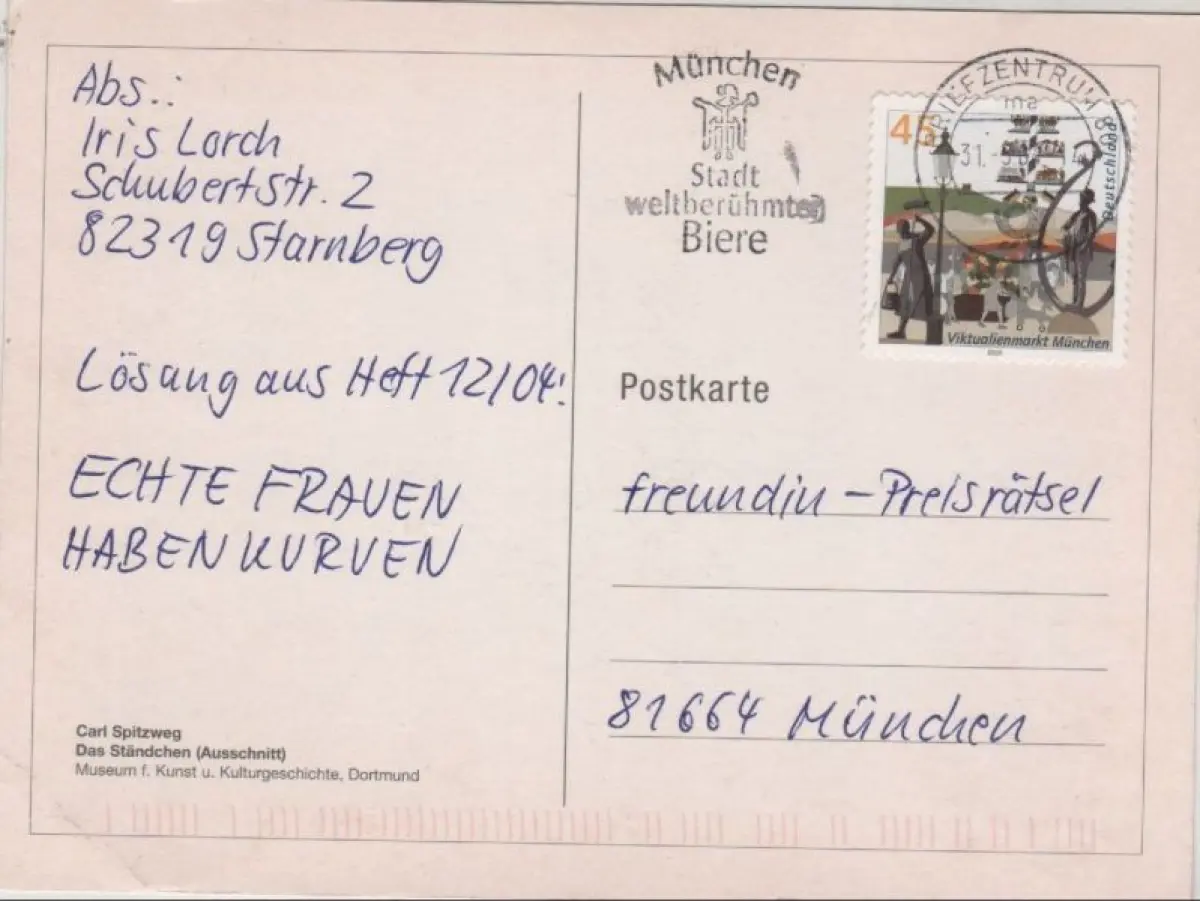 Abs.:
Iris Lorch
Schubertstr. 2
82319 Starnberg
Lösung aus Heft 12/04:
ECHTE FRAUEN
HABEN KURVEN
Carl Spitzweg
Das Ständchen (Ausschnitt)
Museum f. Kunst u. Kulturgeschichte, Dortmund
München
Stadt
weltberühmter
Biere
BRIEFZENTRUM 80
ma
31.
45
Deutschland
Viktualienmarkt München
Postkarte
freundin - Preisrätsel
81664 München